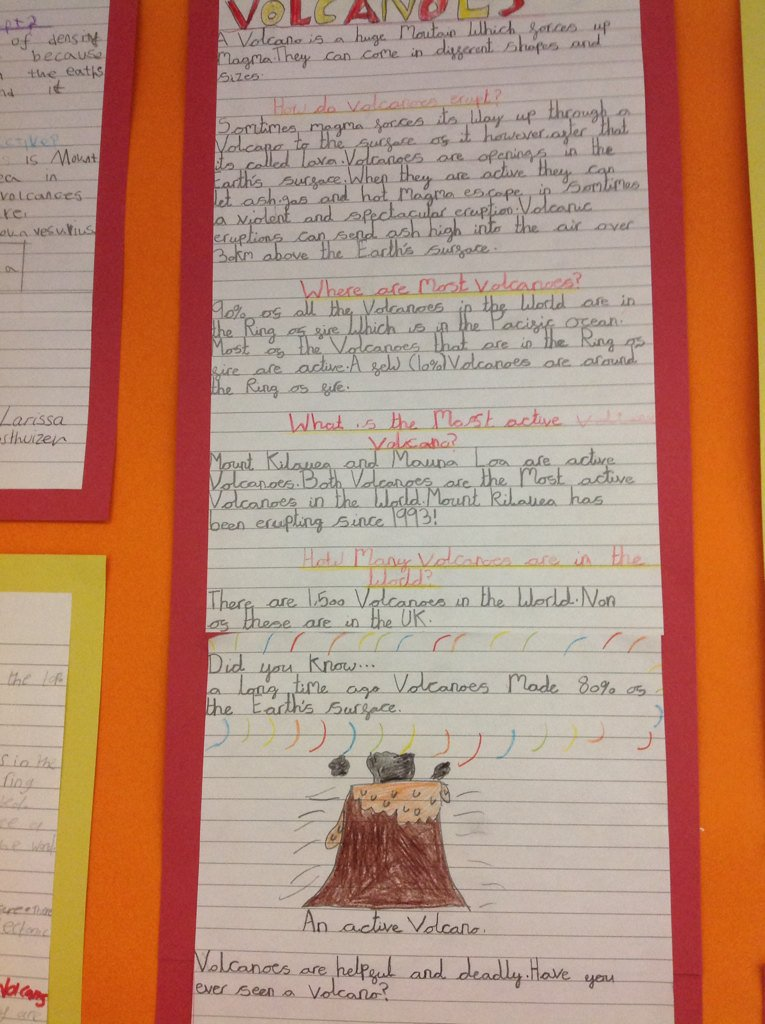 of density
because
the eaths
nd it
is Mount
in
volcances
re.
vesuvius
a
Larissa
sthuizen
VOLCANOES
A Volcano is a huge Moutain Which forces up
Magma.They can come in different shapes and
sizes.
How do Volcanoes erupt?
Somtimes magma forces its Way up through a
Volcano to the surface of it however.after that
its called lava.Volcanoes are openings in the
Earth's surface.When they are active they can
let ash.gas and hot Magma escape in somtimes
a violent and spectacular eruption.Volcanic
eruptions can send ash high into the air over
30km above the Earth's surface.
Where are Most Volcanoes?
90% of all the Volcanoes in the World are in
the Ring of fire Which is in the Pacific ocean.
Most of the Volcanoes that are in the Ring of
fire are active.A few (10%)Volcanoes are around
the Ring of fire.
What is the Most active
Volcano?
Mount Kilauea and Mauna Loa are active
Volcanoes.Both Volcanoes are the Most active
Volcanoes in the World.Mount Kilauea has
been erupting since 1993!
How Many Volcanoes are in the
World?
There are 1,500 Volcanoes in the World.Non
of these are in the UK.
Did you Know...
a long time ago Volcanoes Made 80% of
the Earth's surface.
An active Volcano.
Volcanoes are helpful and deadly.Have you
ever seen a Volcano?
the
s in the
ring